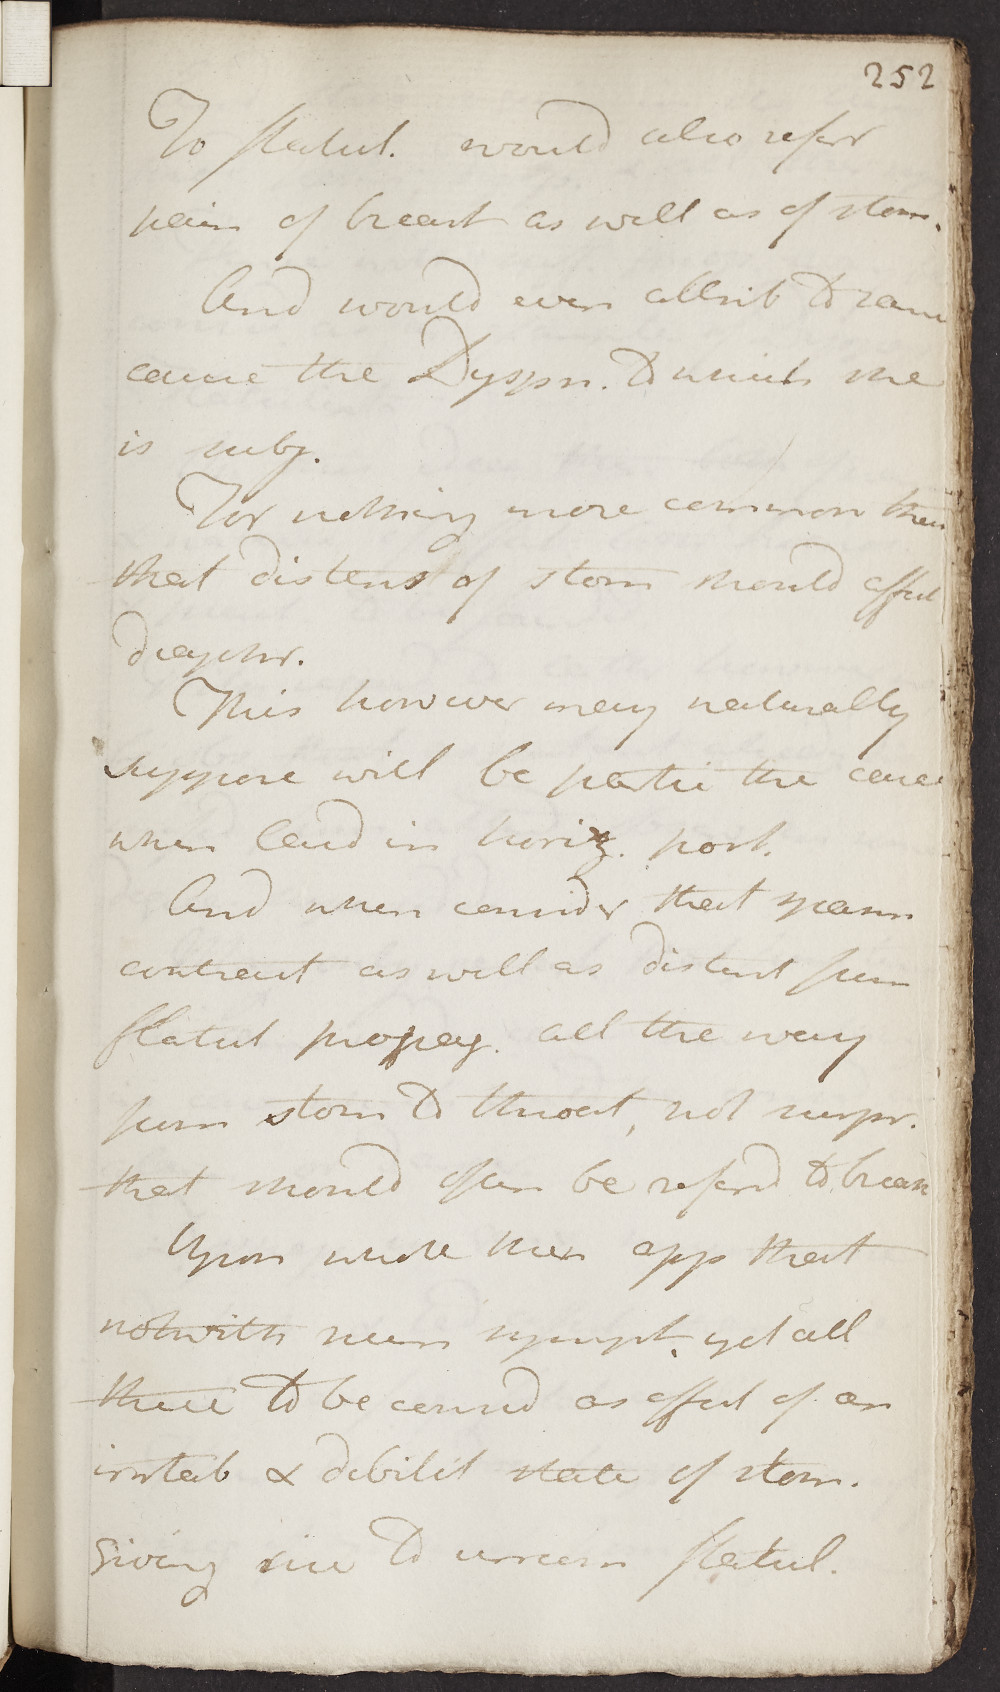 252
To flatul. would also refer
pain of breast as well as of stom.
And would even attrib to same
cause the Dyspn. to which she
is subj.
For nothing more common than
that distens of stom should affect
diaphr.
This however may naturally
suppose will be partic the case
when laid in horiz. post.
And when consider that spasm
contract as well as distent from
flatul propag. all the way
from stom to throat, not surpr.
that should often be referd to breas
Upon whole then app that
notwith num sympt. yet all
these to be consid as effect of an
irritab & debilit state of stom.
giving rise to uncom flatul.